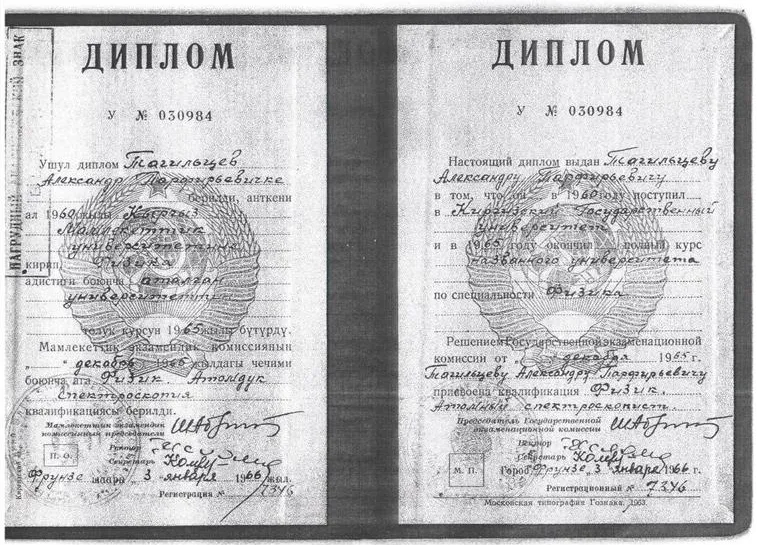 НАГРУДНЫЙ ЗНАК
ДИПЛОМ
У № 030984
Ушул диплом Тагильцев
Александр Парфирьевичке
берилди, анткени
ал 1960 жылы Кыргыз
Мамлекеттик
университетине
кирип, Физика
адистиги боюнча аталган
университеттин
толук курсун 1965 жылы бүтүрдү.
Мамлекеттик экзамендик комиссиянын
" " декабрь 1965 жылдагы чечими
боюнча ага Физик. Атомдук
Спектроскопия
квалификациясы берилди.
Мамлекеттик экзамендик
комиссиянын председатели
Ректор
Секретарь
П. О.
Фрунзе шаары 3 января 1966 жыл.
Регистрация № 7346
ДИПЛОМ
У № 030984
Настоящий диплом выдан Тагильцеву
Александру Парфирьевичу
в том, что он в 1960 году поступил
в Киргизский Государственный
университет
и в 1965 году окончил полный курс
названного университета
по специальности Физика
Решением Государственной экзаменационной
комиссии от " " декабря 1965 г.
Тагильцеву Александру Парфирьевичу
присвоена квалификация Физик.
Атомный спектроскопист.
Председатель Государственной
экзаменационной комиссии
Ректор
Секретарь
М. П.
Город Фрунзе 3 января 1966 г.
Регистрационный № 7346
Московская типография Гознака, 1963.